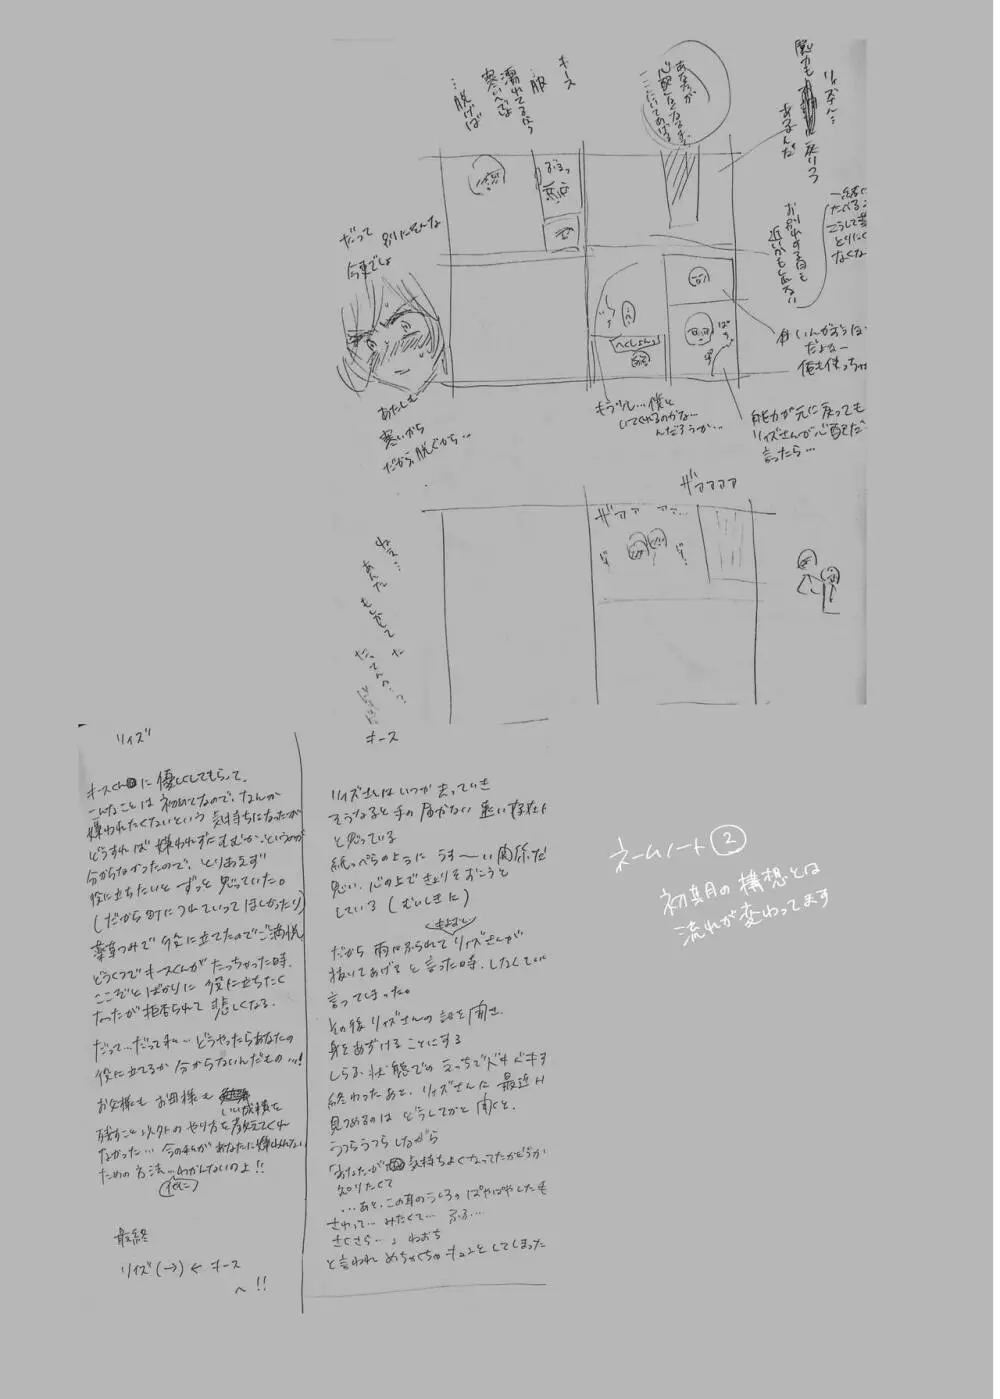 リィズさん…
魔力も
戻りつつ
あるんだ
あなたが
心配になるまで
ここにいてあげる
キース
服
濡れてるから
寒いでしょ
…脱げば
お別れする日も
近いかも知れない
だって 別にそんな
今更でしょ
だよなー
へくしょんっ
もう少し…僕と
いてくれるのかな…
んだろうか…
能力が元に戻っても
リィズさんが心配だ
言ったら…
あたしも
寒いから
だから、脱ぐから…
ザアアアア
ザアア アア…
ねえ…
あんた
もしかして
リィズ
キースくんに優しくしてもらって、
こんなことは初めてなので、なんか
嫌われたくないという気持ちになったが
どうすれば嫌われずにすむか、というのが
分からなかったので、とりあえず
役に立ちたいとずっと思っていた。
(だから町につれていってほしかった)
薬草つみで役に立てたのでご満悦
どうくつでキースくんがたっちゃった時、
ここぞとばかりに役に立ちたく
なったが拒否られて悲しくなる。
だって…だって私…どうやったらあなたの
役に立てるか分からないんだもの…!
お父様もお母様も
いい成績を
残すこと以外のやり方を教えてくれ
なかった…今の私があなたに嫌われない
ための方法…わかんないのよ!!
(他に)
最終
リィズ(→)←キース
へ!!
キース
リィズさんはいつか去っていき
そうなると手の届かない遠い存在
と思っている
紙っぺらのようにうす〜い関係だ
思い、心の上できょりをおこうと
している(むいしきに)
だから雨にふられてリィズさんが
抜いてあげてと言った時、しなくてい
言ってしまった。
その後リィズさんの話を聞き、
身をあずけることにする
しらふ状態でのえっちでドキドキ
終わったあと、リィズさんに最近
見つめるのはどうしてかと聞くと、
うつらうつらしながら
「あなたが気持ちよくなってたかどうか
知りたくて
…あと、この耳のうしろのぱやぱやしたも
さわって…みたくて…ふふ…
さくさら…」ねおち
と言われめちゃくちゃキュンとしてしまった
ネームノート②
初期の構想とは
流れが変わってます